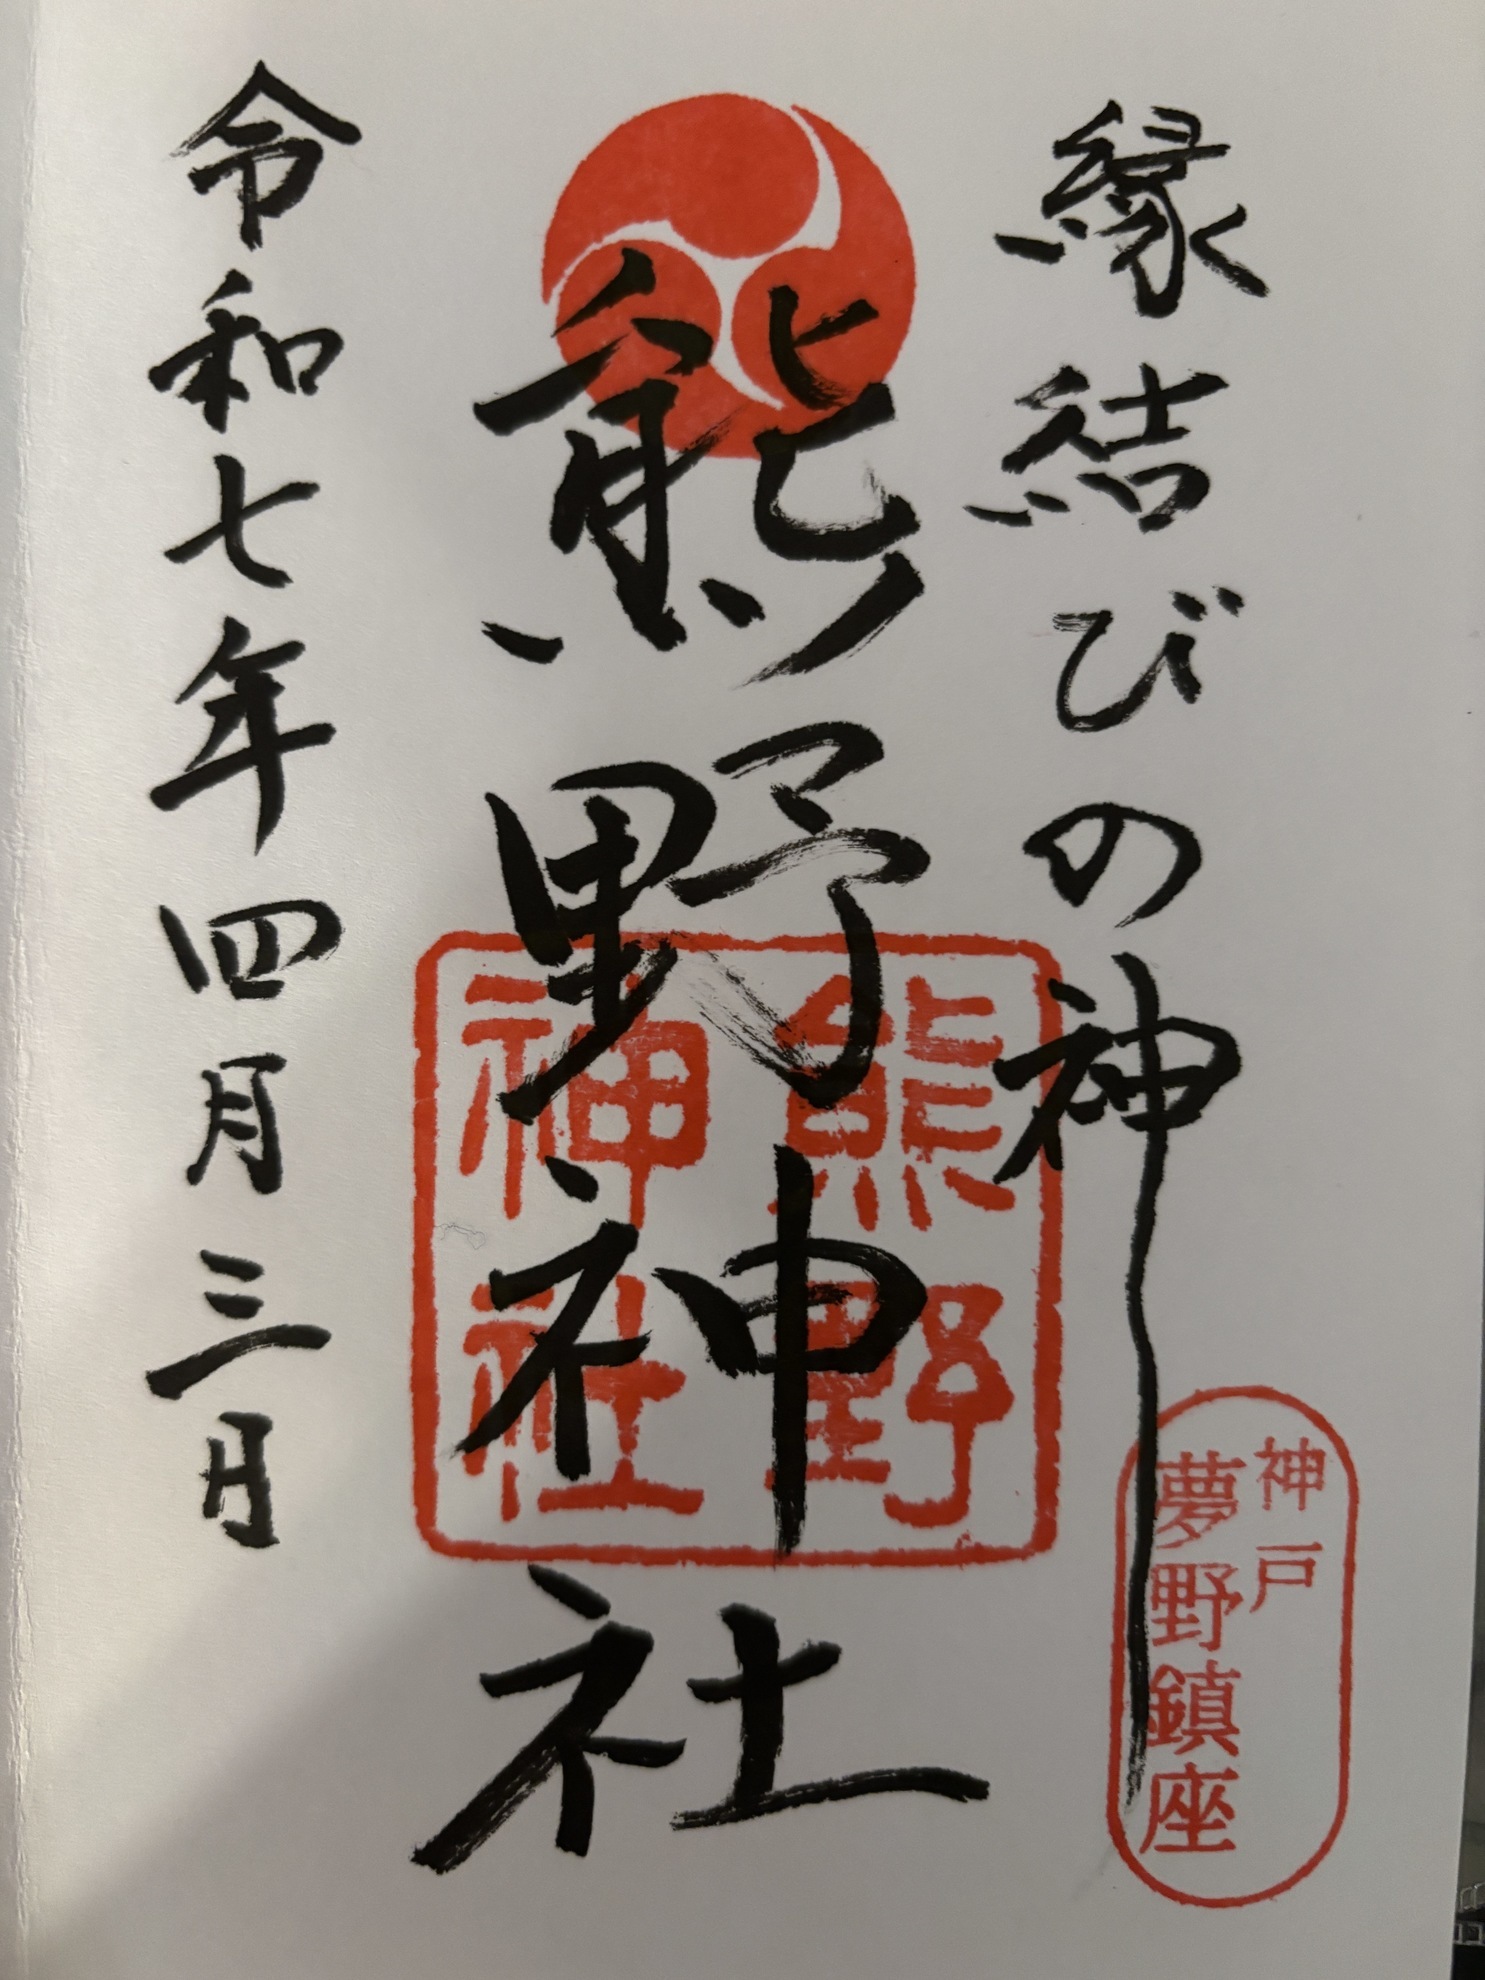 縁結びの神
神戸
夢野鎮座
熊野神社
熊野
神社
令和七年四月三日